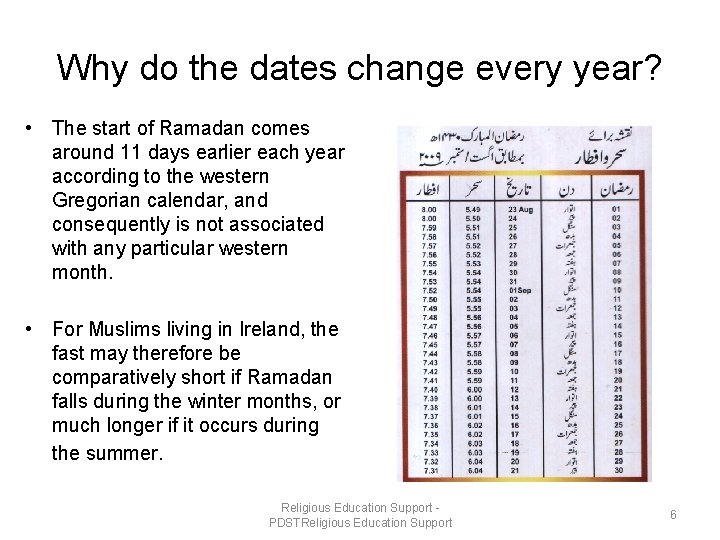 Why do the dates change every year?
• The start of Ramadan comes
around 11 days earlier each year
according to the western
Gregorian calendar, and
consequently is not associated
with any particular western
month.
• For Muslims living in Ireland, the
fast may therefore be
comparatively short if Ramadan
falls during the winter months, or
much longer if it occurs during
the summer.
نقشہ برائے رمضان المبارک ۱۴۳۰ھ
سحر و افطار بمطابق اگست/ستمبر ۲۰۰۹
رمضان دن تاریخ سحر افطار
01 اتوار 23 Aug 5.49 8.00
02 پیر 24 5.50 8.00
03 منگل 25 5.51 7.59
04 بدھ 26 5.51 7.58
05 جمعرات 27 5.52 7.57
06 جمعہ 28 5.52 7.56
07 ہفتہ 29 5.53 7.55
08 اتوار 30 5.54 7.54
09 پیر 31 5.53 7.53
10 منگل 01 Sep 5.54 7.52
11 بدھ 02 5.55 7.50
12 جمعرات 03 5.55 7.49
13 جمعہ 04 5.56 7.48
14 ہفتہ 05 5.56 7.47
15 اتوار 06 5.57 7.46
16 پیر 07 5.57 7.45
17 منگل 08 5.58 7.44
18 بدھ 09 5.58 7.43
19 جمعرات 10 5.59 7.41
20 جمعہ 11 5.59 7.40
21 ہفتہ 12 6.00 7.39
22 اتوار 13 6.00 7.38
23 پیر 14 6.01 7.38
24 منگل 15 6.01 7.36
25 بدھ 16 6.02 7.35
26 جمعرات 17 6.02 7.34
27 جمعہ 18 6.03 7.33
28 ہفتہ 19 6.03 7.32
29 اتوار 20 6.04 7.32
30 پیر 21 6.04 7.31
Religious Education Support -
PDSTReligious Education Support
6